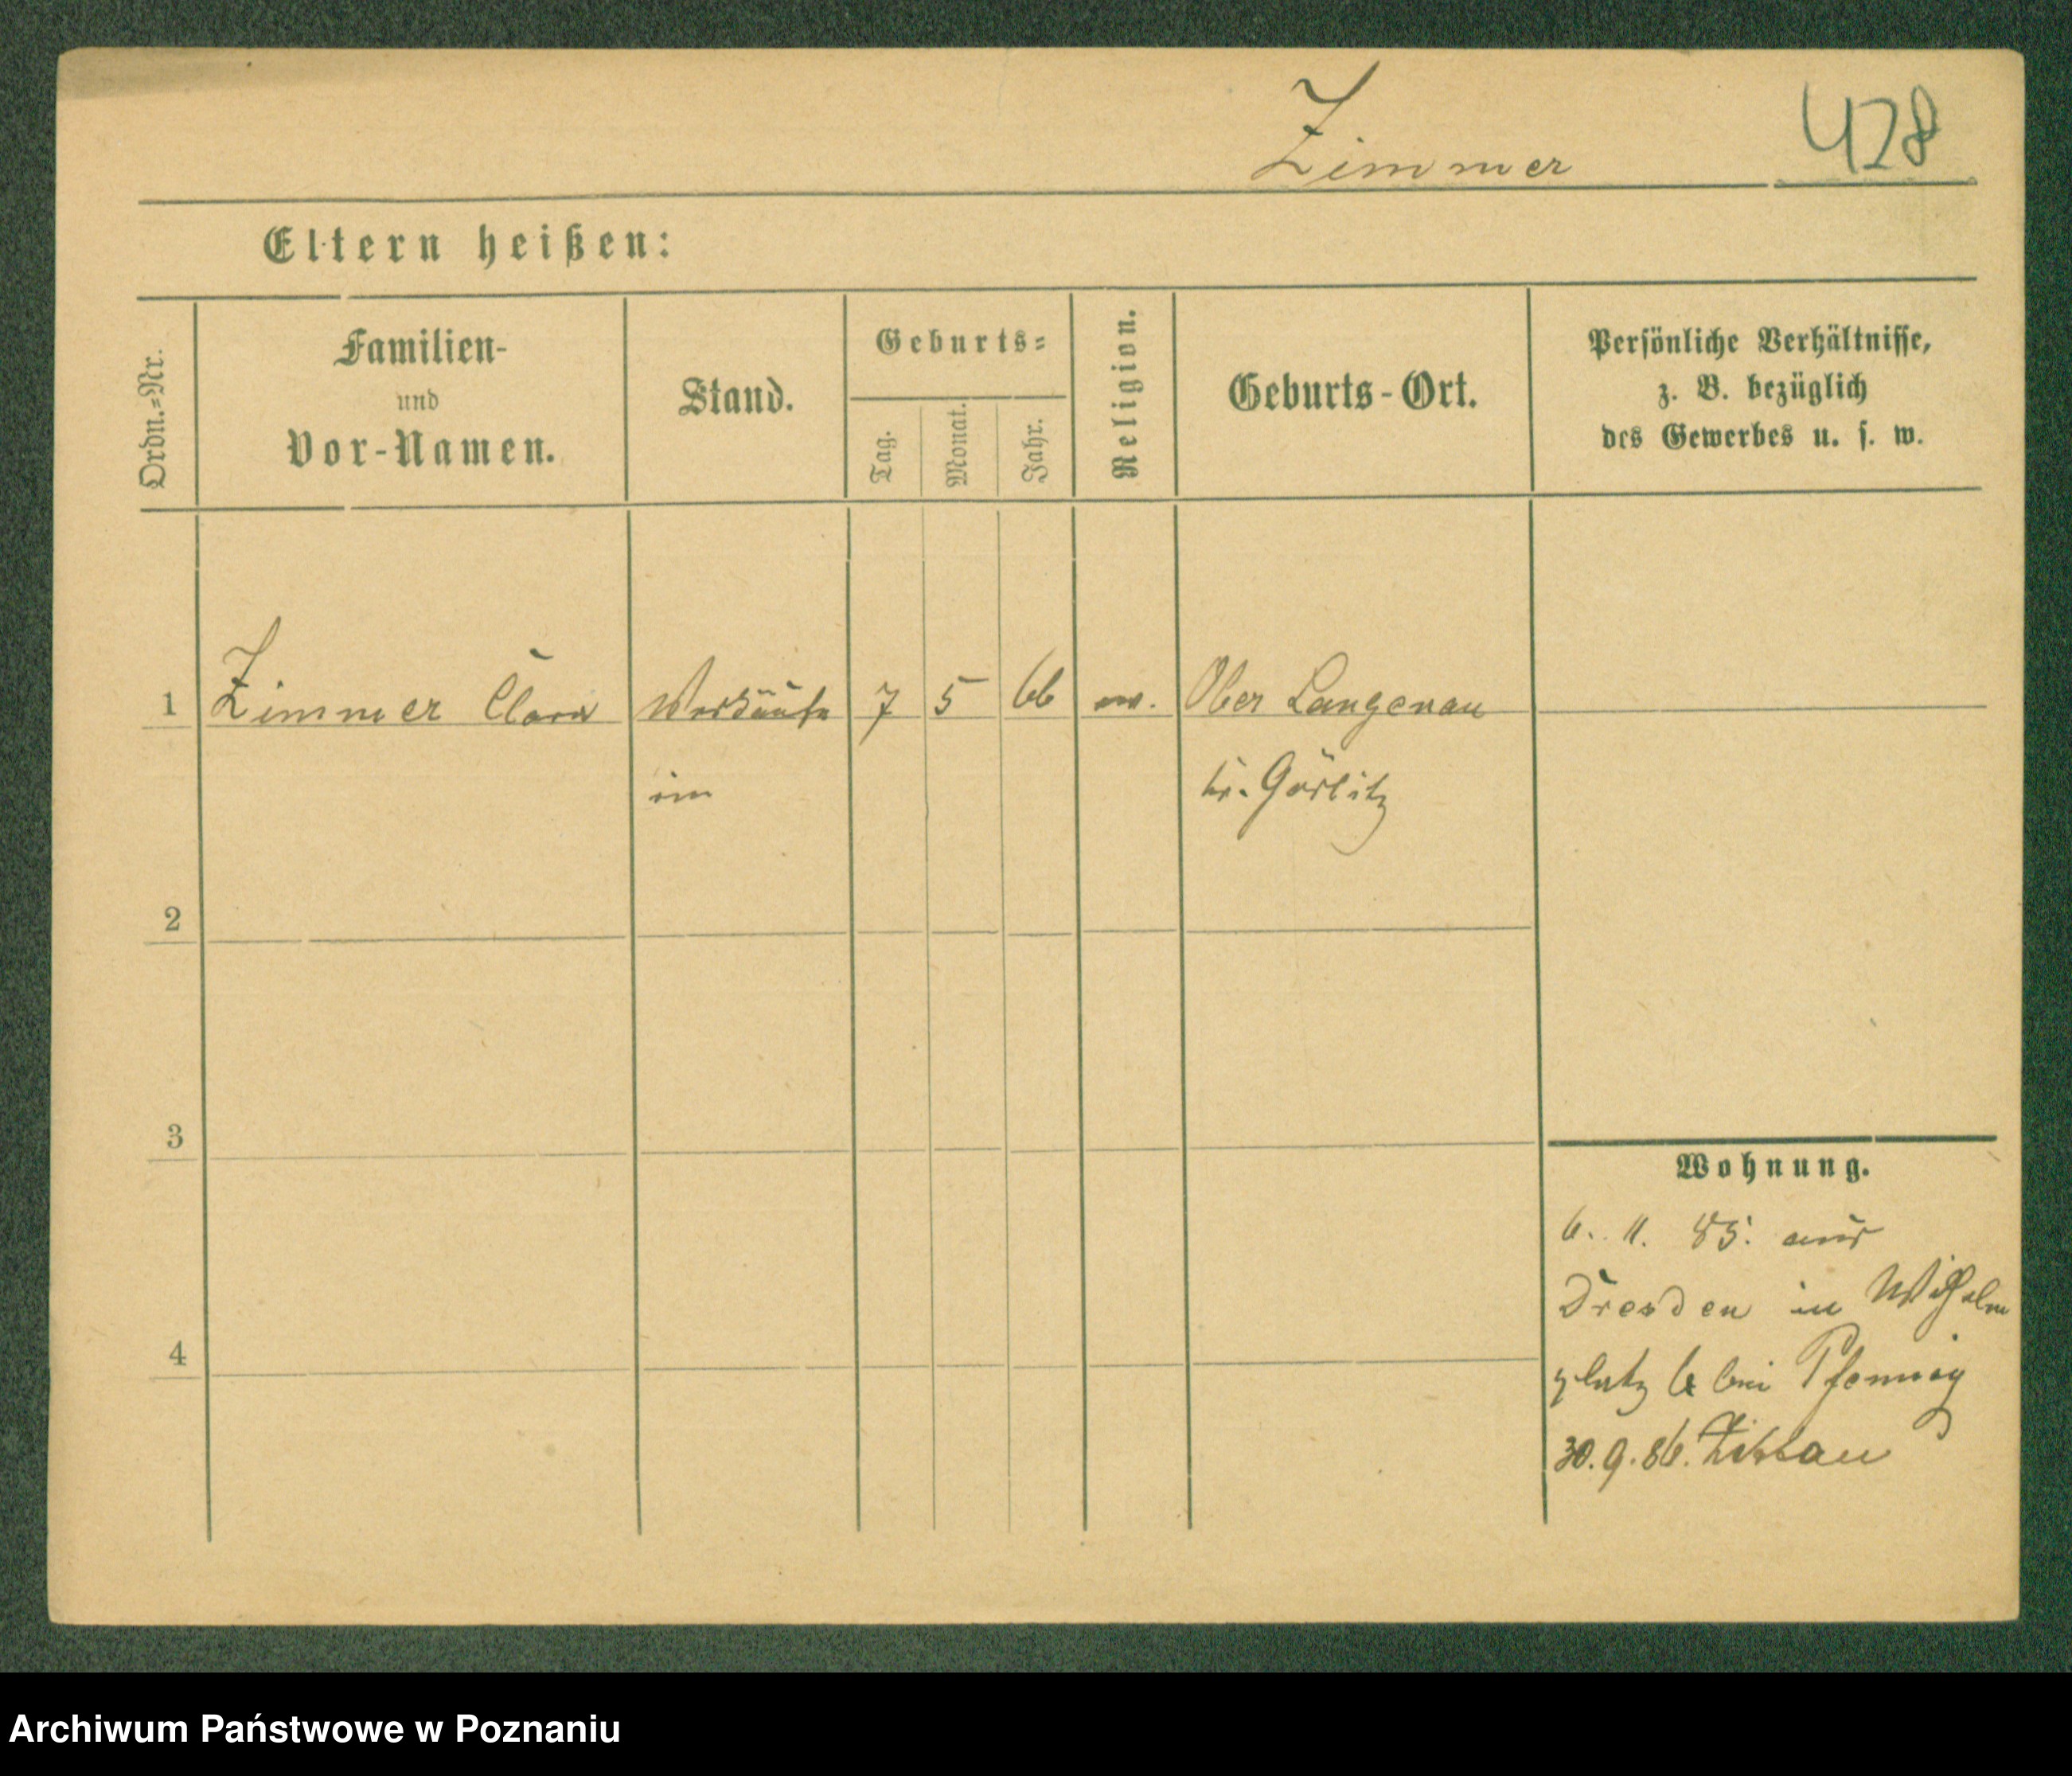 Zimmer 428
Eltern heißen:
Ordn.-Nr.
Familien-
und
Vor-Namen.
Stand.
Geburts-
Tag.
Monat.
Jahr.
Religion.
Geburts-Ort.
Persönliche Verhältnisse,
z. B. bezüglich
des Gewerbes u. s. w.
1 Zimmer Clara Verkäufer 7 5 66 ev. Ober Langenau
in Kr. Görlitz
2
3
4
Wohnung.
6. 11. 85. aus
Dresden in Wilhelm
platz 6 bei Pfennig
30.9.86. Zittau
Archiwum Państwowe w Poznaniu